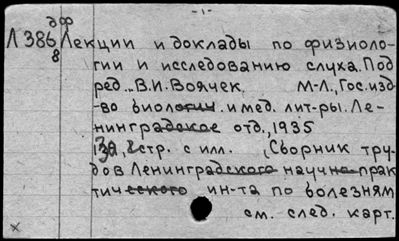 -1-
дф
Л386 Лекции и доклады по физиоло-
8
гии и исследованию слуха. Под
ред... В.И. Воячек. М-Л., Гос. изд
-во биологич. и мед. лит-ры. Ле-
нинградское отд., 1935
стр. с илл. (Сборник тру-
дов Ленинградского научно прак
тического ин-та по болезням
см. след. карт.
×